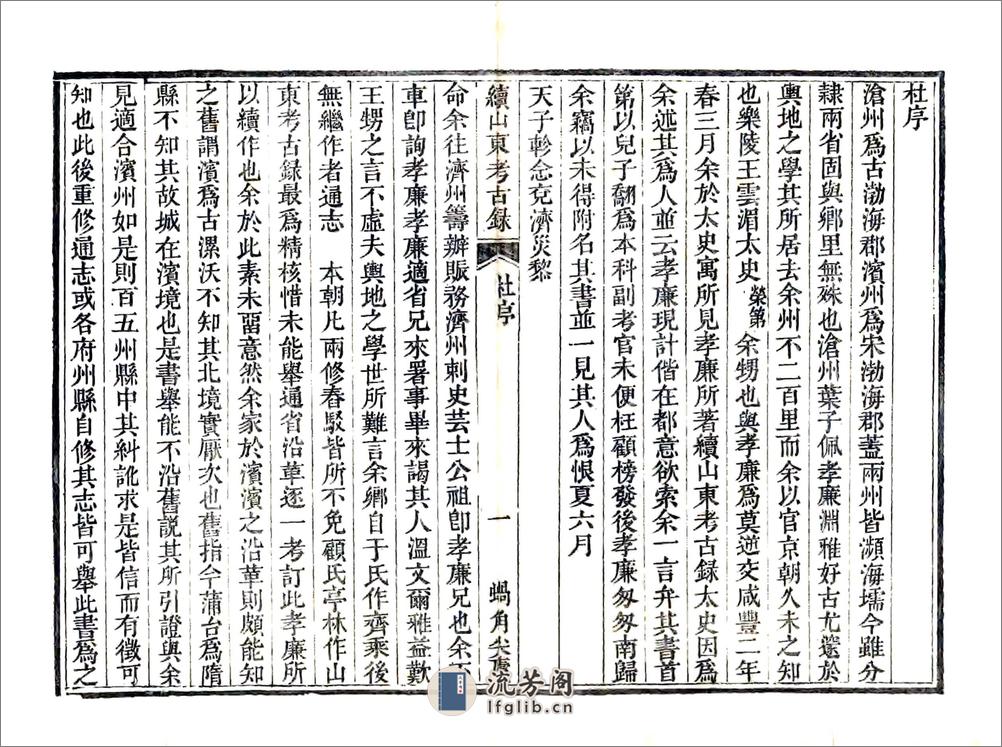 杜序
滄州爲古渤海郡濱州爲宋渤海郡蓋兩州皆瀕海壖今雖分
隸兩省固與鄉里無殊也滄州葉子佩孝廉淵雅好古尤邃於
輿地之學其所居去余州不二百里而余以官京朝久未之知
也樂陵王雲湄太史榮第余甥也與孝廉爲莫逆交咸豐二年
春三月余於太史寓所見孝廉所著續山東考古録太史因爲
余述其爲人並云孝廉現計偕在都意欲索余一言弁其書首
第以兒子翻爲本科副考官未便枉顧榜發後孝廉匆匆南歸
余竊以未得附名其書並一見其人爲恨夏六月
天子軫念兗濟災黎
續山東考古録 杜序 一 蝸角尖廬
命余往濟州籌辦賑務濟州刺史芸士公祖卽孝廉兄也余下
車卽詢孝廉孝廉適省兄來署事畢來謁其人溫文爾雅益歎
王甥之言不虛夫輿地之學世所難言余鄉自于氏作齊乘後
無繼作者通志 本朝凡兩修舂駁皆所不免顧氏亭林作山
東考古録最爲精核惜未能舉通省沿革逐一考訂此孝廉所
以續作也余於此素未畱意然余家於濱濱之沿革則頗能知
之舊謂濱爲古漯沃不知其北境實厭次也舊指今蒲台爲隋
縣不知其故城在濱境也是書舉能不沿舊説其所引證與余
見適合濱州如是則百五州縣中其糾訛求是皆信而有徵可
知也此後重修通志或各府州縣自修其志皆可舉此書爲之
流芳阁
lfglib.cn